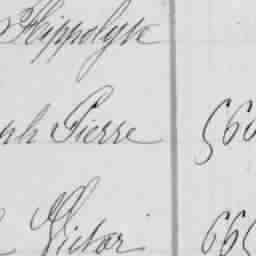 Hippolyte
ph Pierre 560
Victor 665